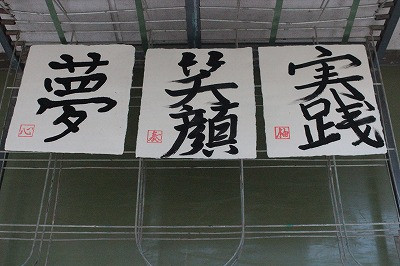 夢
心
笑顔
実践